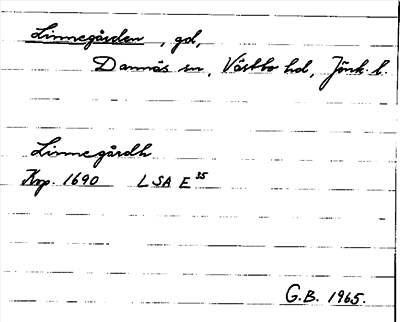 Linnegården, gd,
Dannäs sn, Västbo hd, Jönk. l.
Linnegårdh
Kop. 1690 LSA E 35
G.B. 1965.